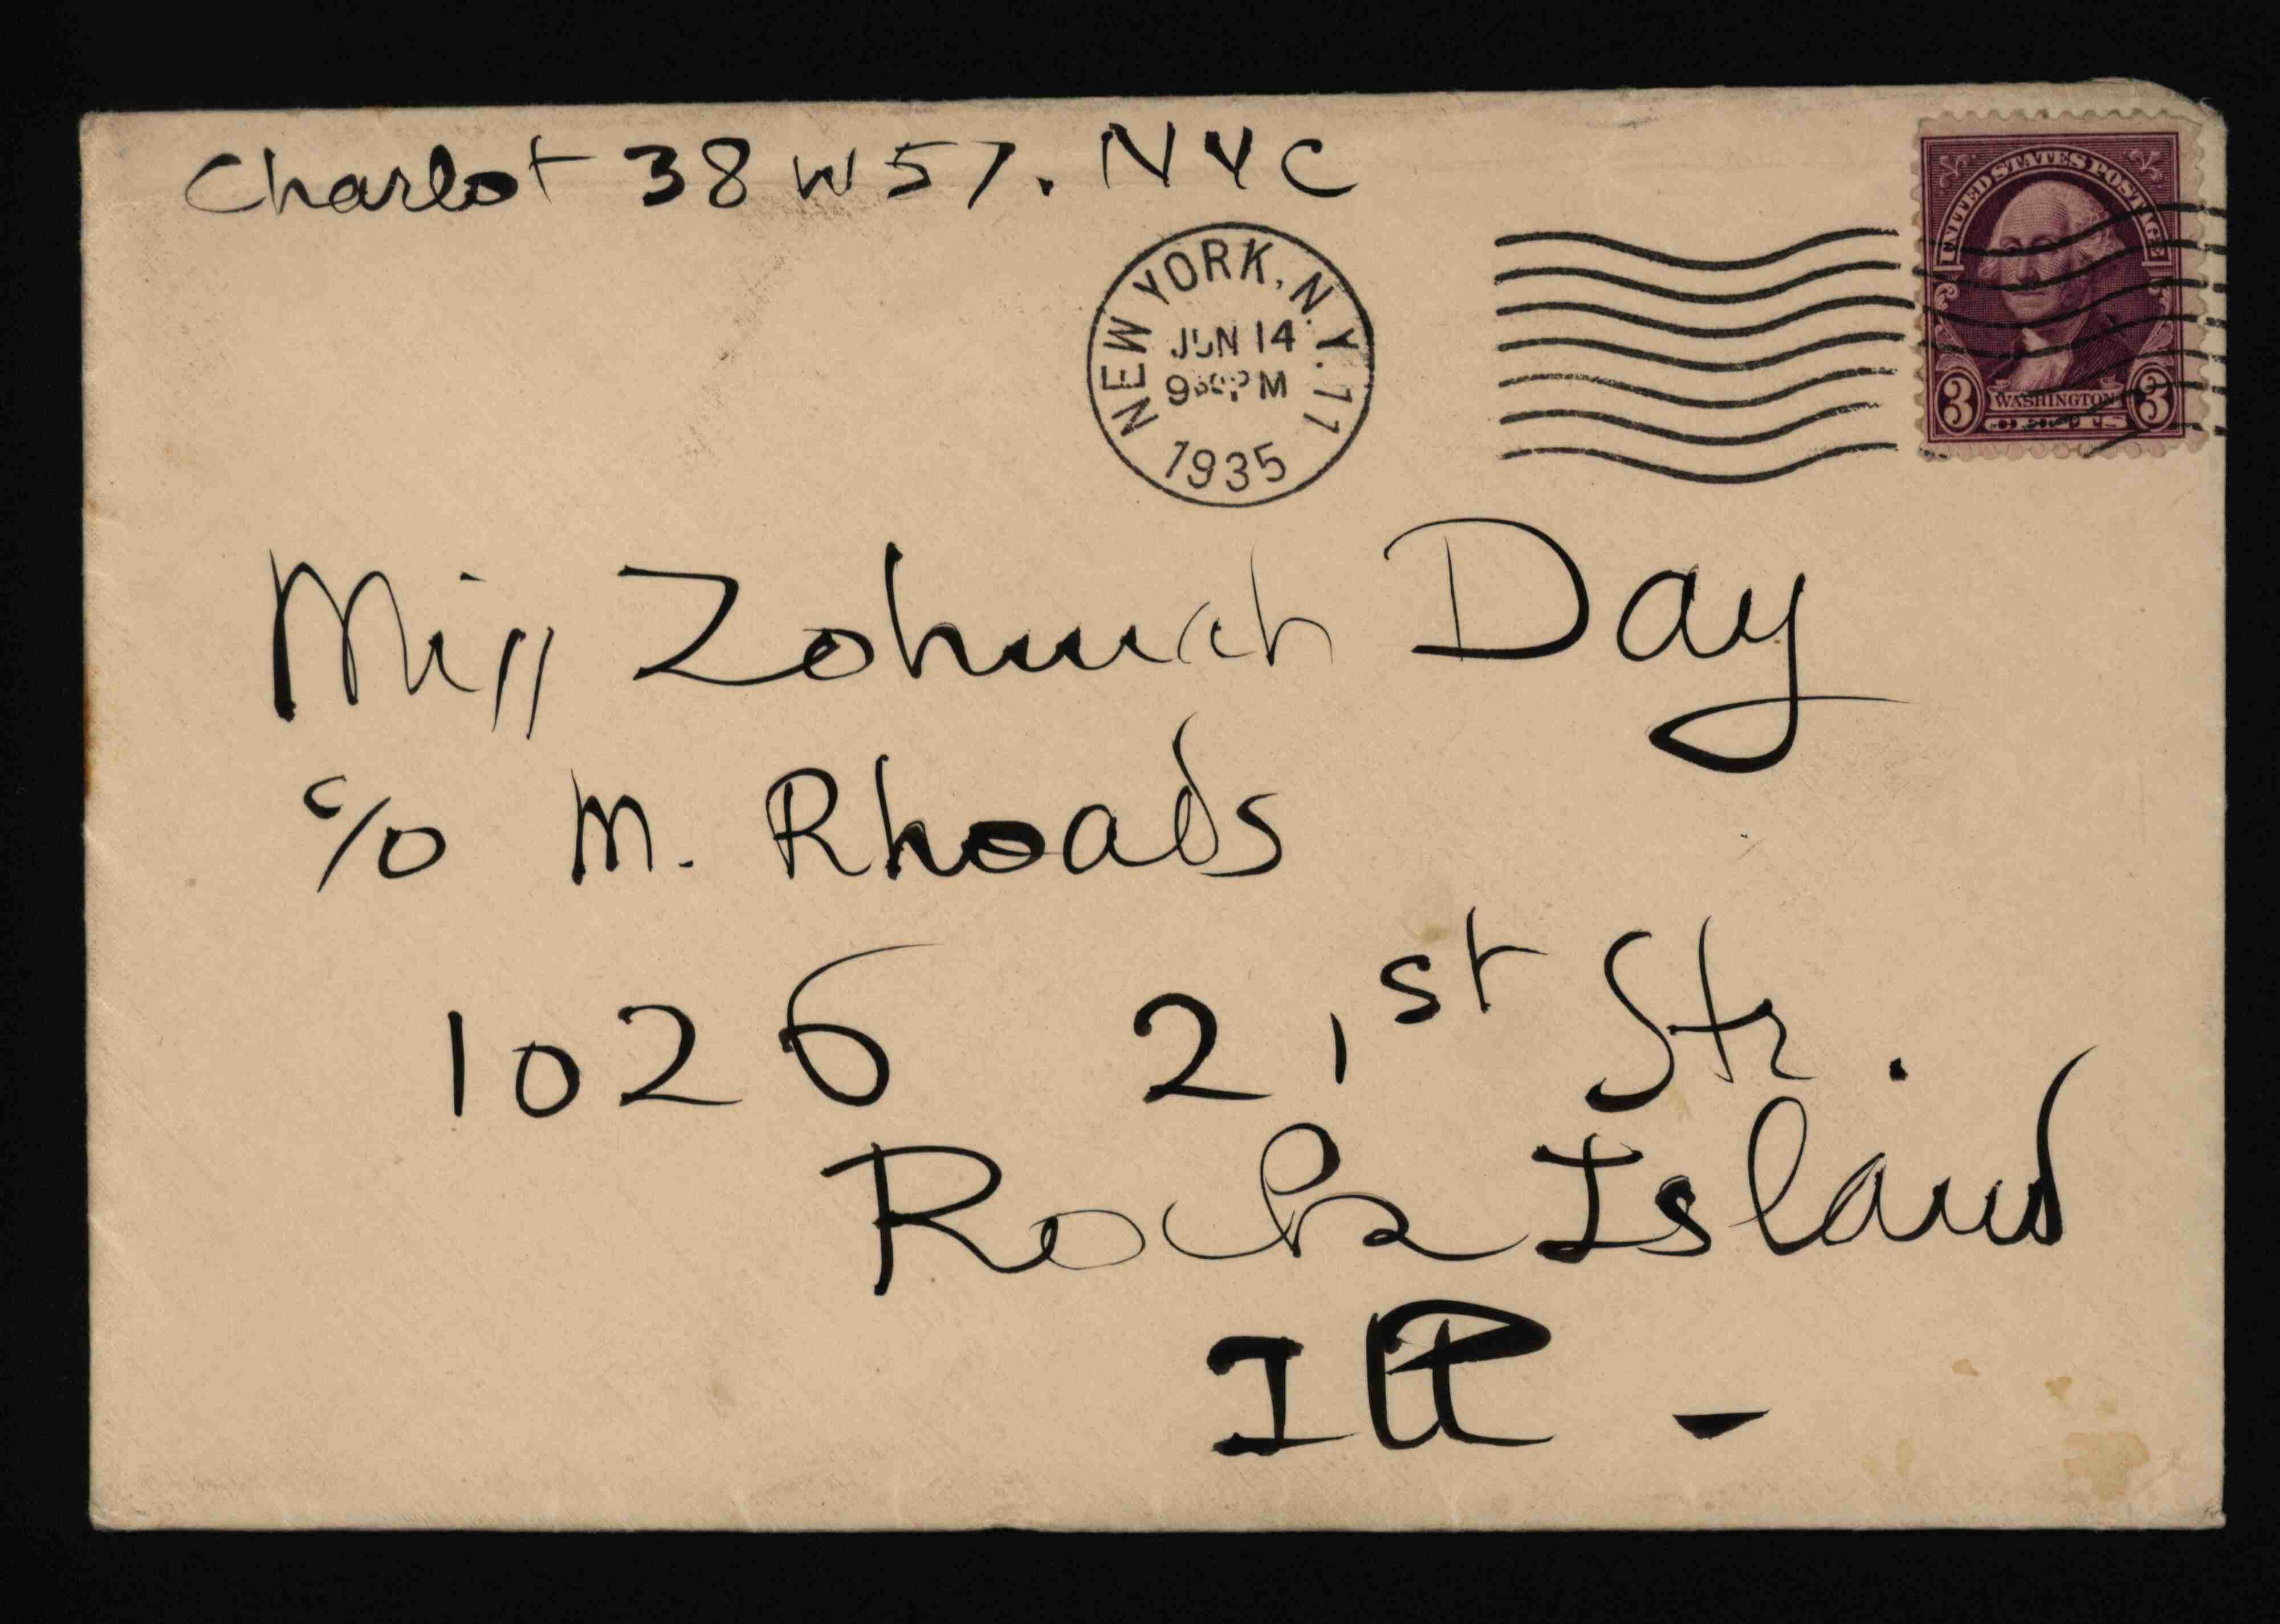 Charlot 38 W 57. NYC
UNITED STATES POSTAGE
3 WASHINGTON 3
NEW YORK, N.Y. 11
JUN 14
9 PM
1935
Miss Zohmah Day
c/o M. Rhoads
1026 21st Str.
Rock Island
Ill -